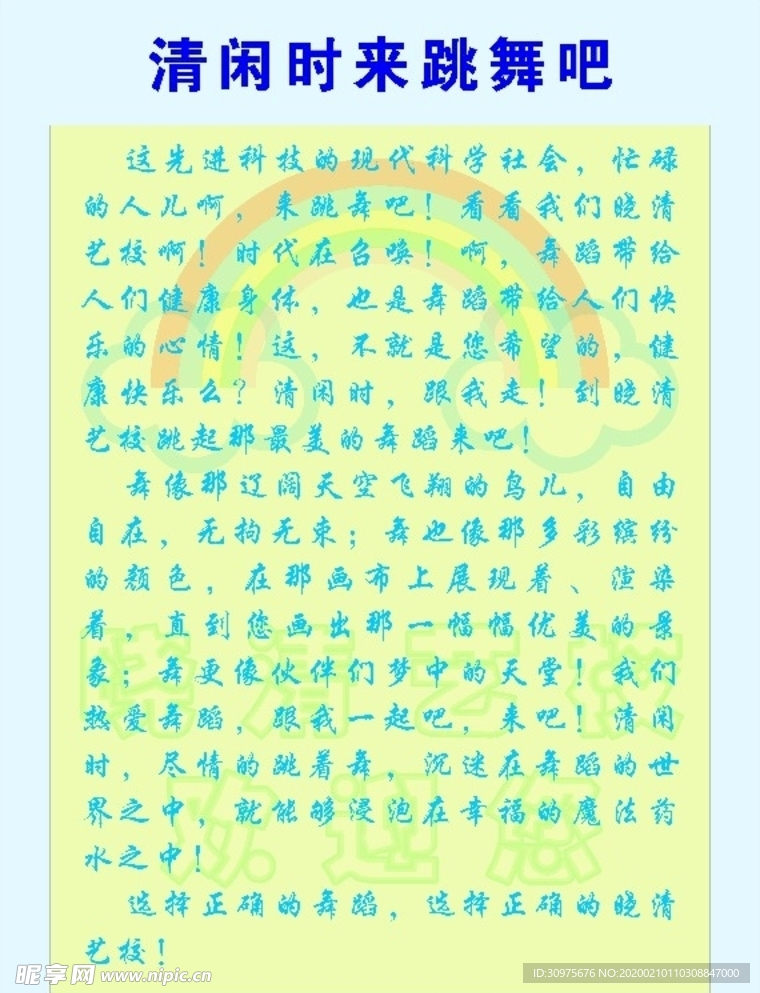 清闲时来跳舞吧
这先进科技的现代科学社会，忙碌
的人儿啊，来跳舞吧！看看我们晓清
艺校啊！时代在召唤！啊，舞蹈带给
人们健康身体，也是舞蹈带给人们快
乐的心情！这，不就是您希望的，健
康快乐么？清闲时，跟我走！到晓清
艺校跳起那最美的舞蹈来吧！
舞像那辽阔天空飞翔的鸟儿，自由
自在，无拘无束；舞也像那多彩缤纷
的颜色，在那画布上展现着、渲染
着，直到您画出那一幅幅优美的景
象；舞更像伙伴们梦中的天堂！我们
热爱舞蹈，跟我一起吧，来吧！清闲
时，尽情的跳着舞，沉迷在舞蹈的世
界之中，就能够浸泡在幸福的魔法药
水之中！
选择正确的舞蹈，选择正确的晓清
艺校！
晓清艺校
欢迎您
昵享网 www.nipic.cn
ID:30975676 NO:20200210110308847000